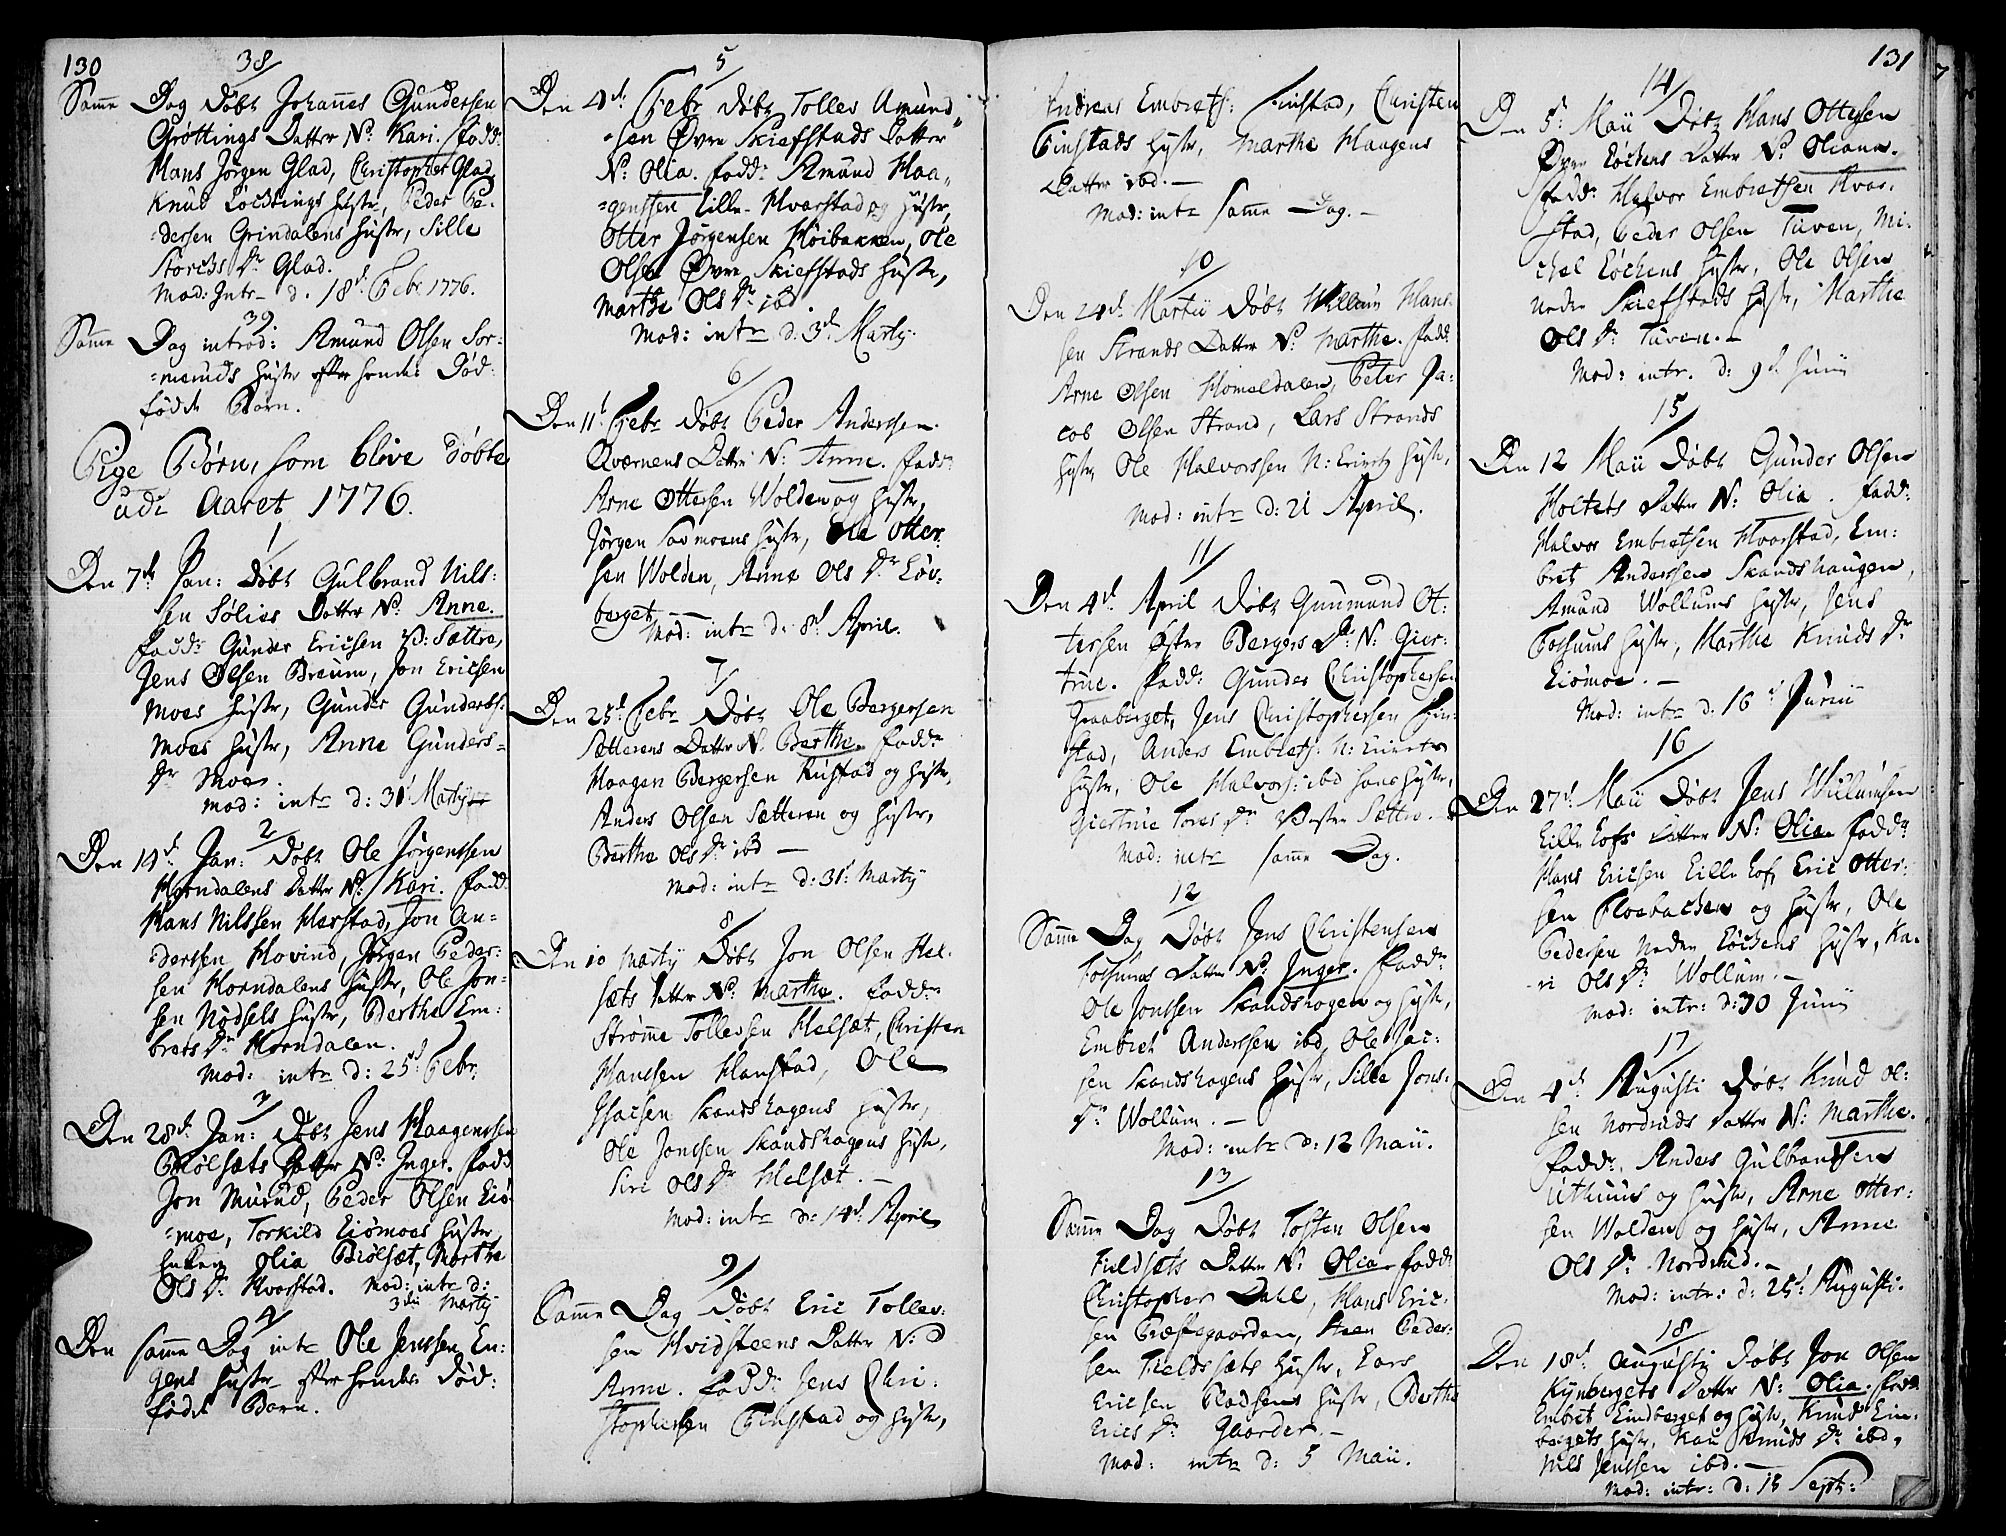 130
38
Samme Dag Døbt Johannes Gundersen
Grøttings Datter N: Kari. fadd:
Hans Jørgen Glad, Christopher Glad
Knud Løchtings hustr, Peder Pe-
dersen Grindalens hustr, Sille
Storchs Dr Glad.
Mod: Intr d. 18d Febr 1776.
39
Samme Dag introd: Amund Olsen Sor-
meruds hustr efter hendes Død-
fødde Børn.
Pige Børn, som blive døbte
udi Aaret 1776.
1
Den 7d Jan: Døbt Gulbrand Nils-
sen Sølies Datter N: Anne.
fadd: Gunder Ericsen V: Sættre,
Jens Olsen Breum, Jon Ericsen
Moes hustr, Gunder Gunders:
Moes hustr, Anne Gunders-
Dr Moes.
Mod: intr d: 31 Martij
2
Den 14d Jan: Døbt Ole Jørgenssen
Horndalens Datter N: Kari. fadd:
Hans Nilssen Harstad, Jon An-
derssen Hovind, Jørgen Peder-
sen Horndalens hustr, Ole Jon-
sen Nødsets hustr, Berthe Em-
brets Dr Horndalen.
Mod: intr d: 25d Febr.
3
Den 28d Jan: Døbt Jens Haagenssen
Biølsæts Datter N: Inger. fadd
Jon Murud, Peder Olsen Eiø-
moe, Torkild Eiømoes hustr
Enken Olia Biølset, Marthe
Ols Dr Hvarstad. Mod: intr d:
3die Martij
4
Den samme Dag intr Ole Jenssen En-
gens hustr efter hendes Død-
fødde Børn.
5
Den 4d Febr Døbt Tollev Amund-
sen Øvre Skiefstads Datter
N: Olia. fadd: Amund Haa-
genssen Lille-Hvarstad og hustr,
Otter Jørgensen Høibakken, Ole
Olsen Øvre Skiefstads hustr,
Marthe Ols Dr ibd.
Mod: intr d: 3d Martij
6
Den 11d Febr Døbt Peder Anderssen
Qværnens Datter N: Anne. fadd:
Arne Ottersen Wolden og hustr,
Jørgen Savmoens hustr, Ole Otter-
sen Wolden, Anne Ols Dr Løv-
berget
Mod: intr d: 8d April.
7
Den 25d Febr Døbt Ole Bergersen
Sætterens Datter N: Berthe. fadd:
Haagen Bergersen Rustad og hustr,
Anders Olsen Sætteren og hustr,
Berthe Ols Dr ibd
Mod: intr d: 31 Martij
8
Den 10 Martij Døbt Jon Olsen Hel-
sæts Datter N: Marthe. fadd:
Strømme Tollevsen Helsæt, Christen
Hanssen Hanstad, Ole
Isacsen Skandshagens hustr,
Ole Jonssen Skandshagens hustr,
Siri Ols Dr Helsæt.
Mod: intr d: 14d April
9
Samme Dag Døbt Eric Tollev-
sen Hvidsteens Datter N:
Anne. fadd: Jens Chri-
stophersen Finstad og hustr,
131
Andreas Embrets: Finstad, Christen
Finstads hustr, Marthe Haagens
Datter ibd.
Mod: intr samme Dag.
10
Den 24d Martii Døbt Willum Hans-
sen Strands Datter N: Marthe. fadd:
Arne Olsen Homeldalen, Peter Ja-
cob Olsen Strand, Lars Strands
hustr, Ole Halvorssen N: hustr,
Mod: intr d: 21 April.
11
Den 4d April Døbt Gunmund Ot-
tersen Østre Bergers Dr N: Gier-
true. fadd: Gunder Christophersen
Graaberget, Jens Christophersen Fin-
stad, Anders Embrets: N:
hustr, Ole Halvors: ibd hans hustr,
Giertrue Tores Dr Vestre Sættre.
Mod: intr samme Dag.
12
Samme Dag Døbt Jens Christensen
Fossums Datter N: Inger. fadd:
Ole Jonssen Skandshagen og hustr,
Embret Anderssen ibd, Ole Isac-
sen Skandshagens hustr, Sille Jons-
Dr Wollum.
Mod: intr d: 12 Maii.
13
Samme Dag Døbt Tosten Olsen
Fieldsæts Datter N: Olia. fadd:
Christopher Dahl, Hans Eric-
sen Præstegaarden, Steen Peder-
sen Fieldsæts hustr, Lars
Ericsen Pladsens hustr, Berthe
Erics Dr Gaarder.
Mod: intr d: 5 Maii.
14
Den 5: Maii Døbt Hans Ottesen
Øvre Løchens Datter N: Oliana.
fadd: Halvor Embretsen Hvar-
stad, Peder Olsen Tuven, Mi-
chel Løchens hustr, Ole Olsen
neder Skiefstads hustr, Marthe
Ols Dr Tuven.
Mod: intr. d: 9d Junii
15
Den 12 Maii Døbt Gunder Olsen
Holtets Datter N: Olia. fadd:
Halvor Embretsen Hvarstad, Em-
bret Anderssen Skandshaugen,
Amund Wollums hustr, Jens
Fossums hustr, Marthe Knuds Dr
Eiømoe.
Mod: intr d: 16d Junii
16
Den 27d Maii Døbt Jens Willumsen
Lille Lofs Datter N: Olia. fadd:
Hans Ericsen Lille Lof, Eric Otter-
sen Floebachen og hustr, Ole
Pedersen Neder Løchens hustr, Ka-
ri Ols Dr Wollum.
Mod: intr: d: 30 Junii
17
Den 4d Augusti Døbt Knud Ol-
sen Nordruds Datter N: Marthe.
fadd: Anders Gulbrandsen
Uthuus og hustr, Arne Otter-
sen Wolden og hustr, Anne
Ols Dr Nordrud.
Mod: intr: d: 25d Augusti.
18
Den 18d Augusti Døbt Jon Olsen
Kynbergets Datter N: Olia. fadd
Embret Lindberget og hustr, Knud Lin-
bergets hustr, Kari Knuds Dr ibd,
Nils Jenssen ibd.
Mod: intr: d: 15 Septr: